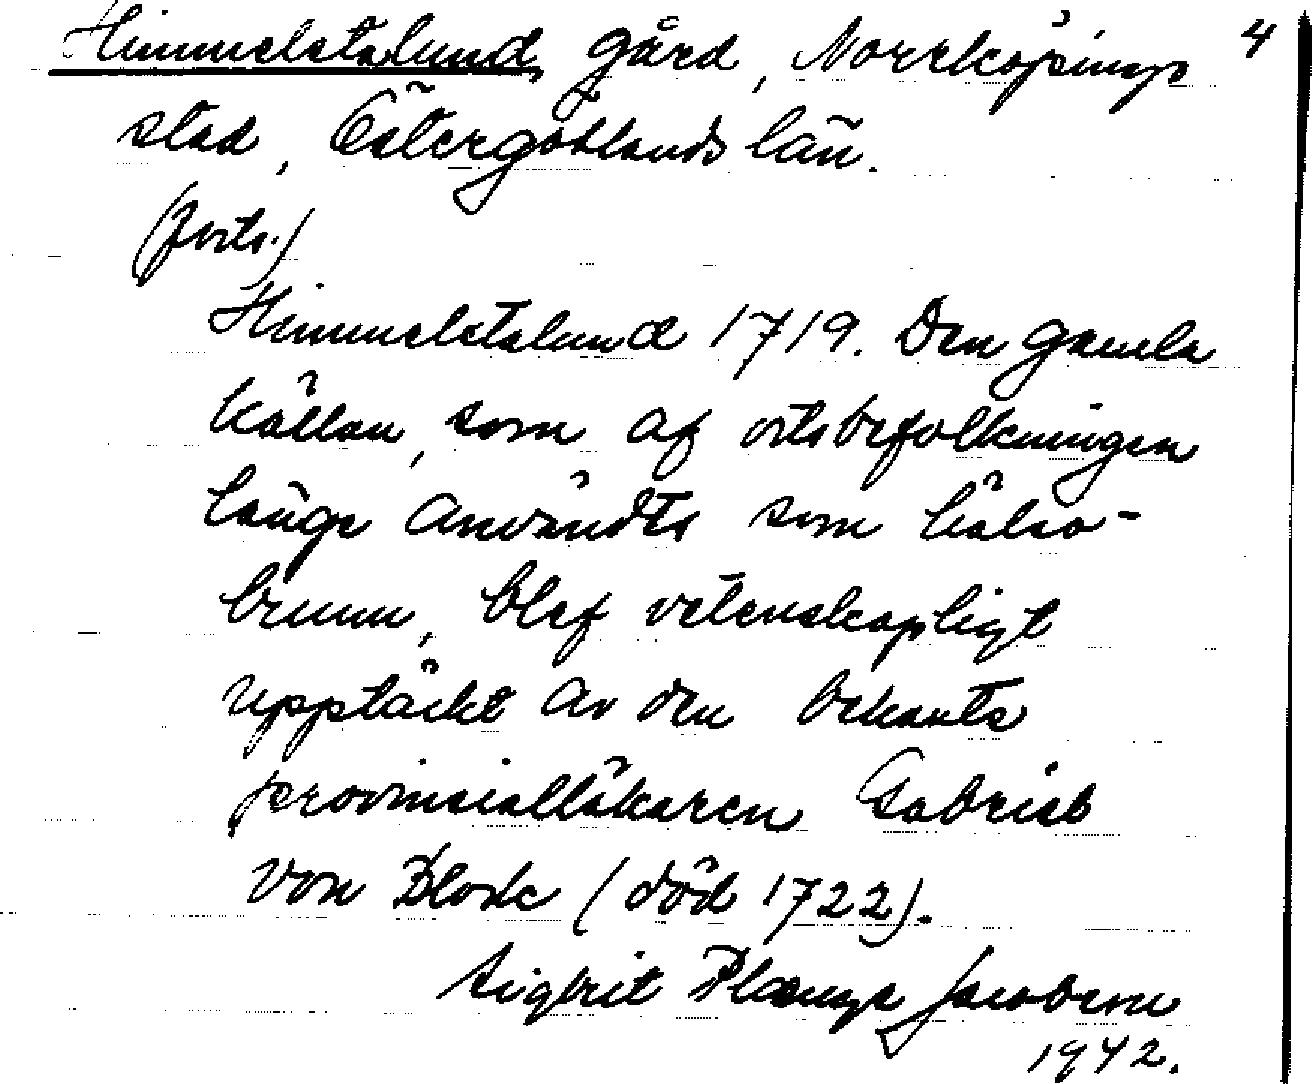 Himmelstalund, gård, Norrköpings 4
stad, Östergötlands län.
(forts.)
Himmelstalund 1719. Den gamla
källan, som af ortsbefolkningen
länge användts som hälso-
brunn, blef vetenskapligt
upptäckt av den bekante
provinsialläkaren Gabriel
von Block (död 1722).
Sigbrit Plænge Jacobson
1942.